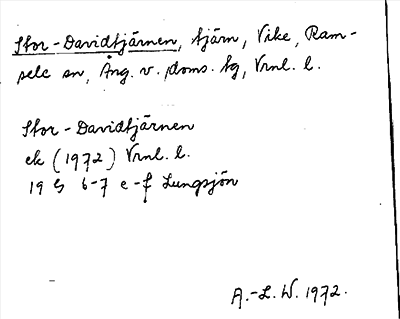 Stor-Davidtjärnen, tjärn, Vike, Ram-
sele sn, Ång. v. doms. tg, Vrnl. l.
Stor-Davidtjärnen
ek (1972) Vrnl. l.
19 G 6-7 e-f Lungsjön
A.-L. W. 1972.